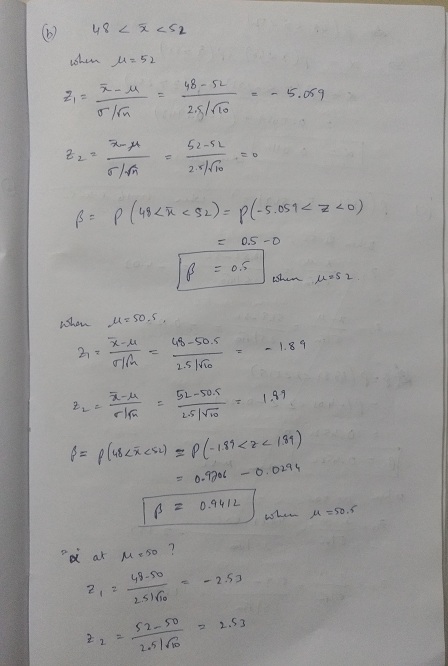 (b) 48 < x̄ < 52
when μ=52
Z₁ = x̄ - μ / σ/√n = 48-52 / 2.5/√10 = - 5.059
Z₂ = x̄-μ / σ/√n = 52-52 / 2.5/√10 = 0
β = P(48<x̄<52) = P(-5.059< Z <0)
= 0.5 -0
β = 0.5 when μ=52
when μ=50.5.
Z₁ = x̄-μ / σ/√n = 48-50.5 / 2.5/√10 = - 1.89
Z₂ = x̄-μ / σ/√n = 52-50.5 / 2.5/√10 = 1.89
β = P(48<x̄<52) = P(-1.89<z<1.89)
= 0.9706 - 0.0294
β = 0.9412 when μ=50.5
α at μ=50 ?
Z₁ = 48-50 / 2.5/√10 = - 2.53
Z₂ = 52-50 / 2.5/√10 = 2.53